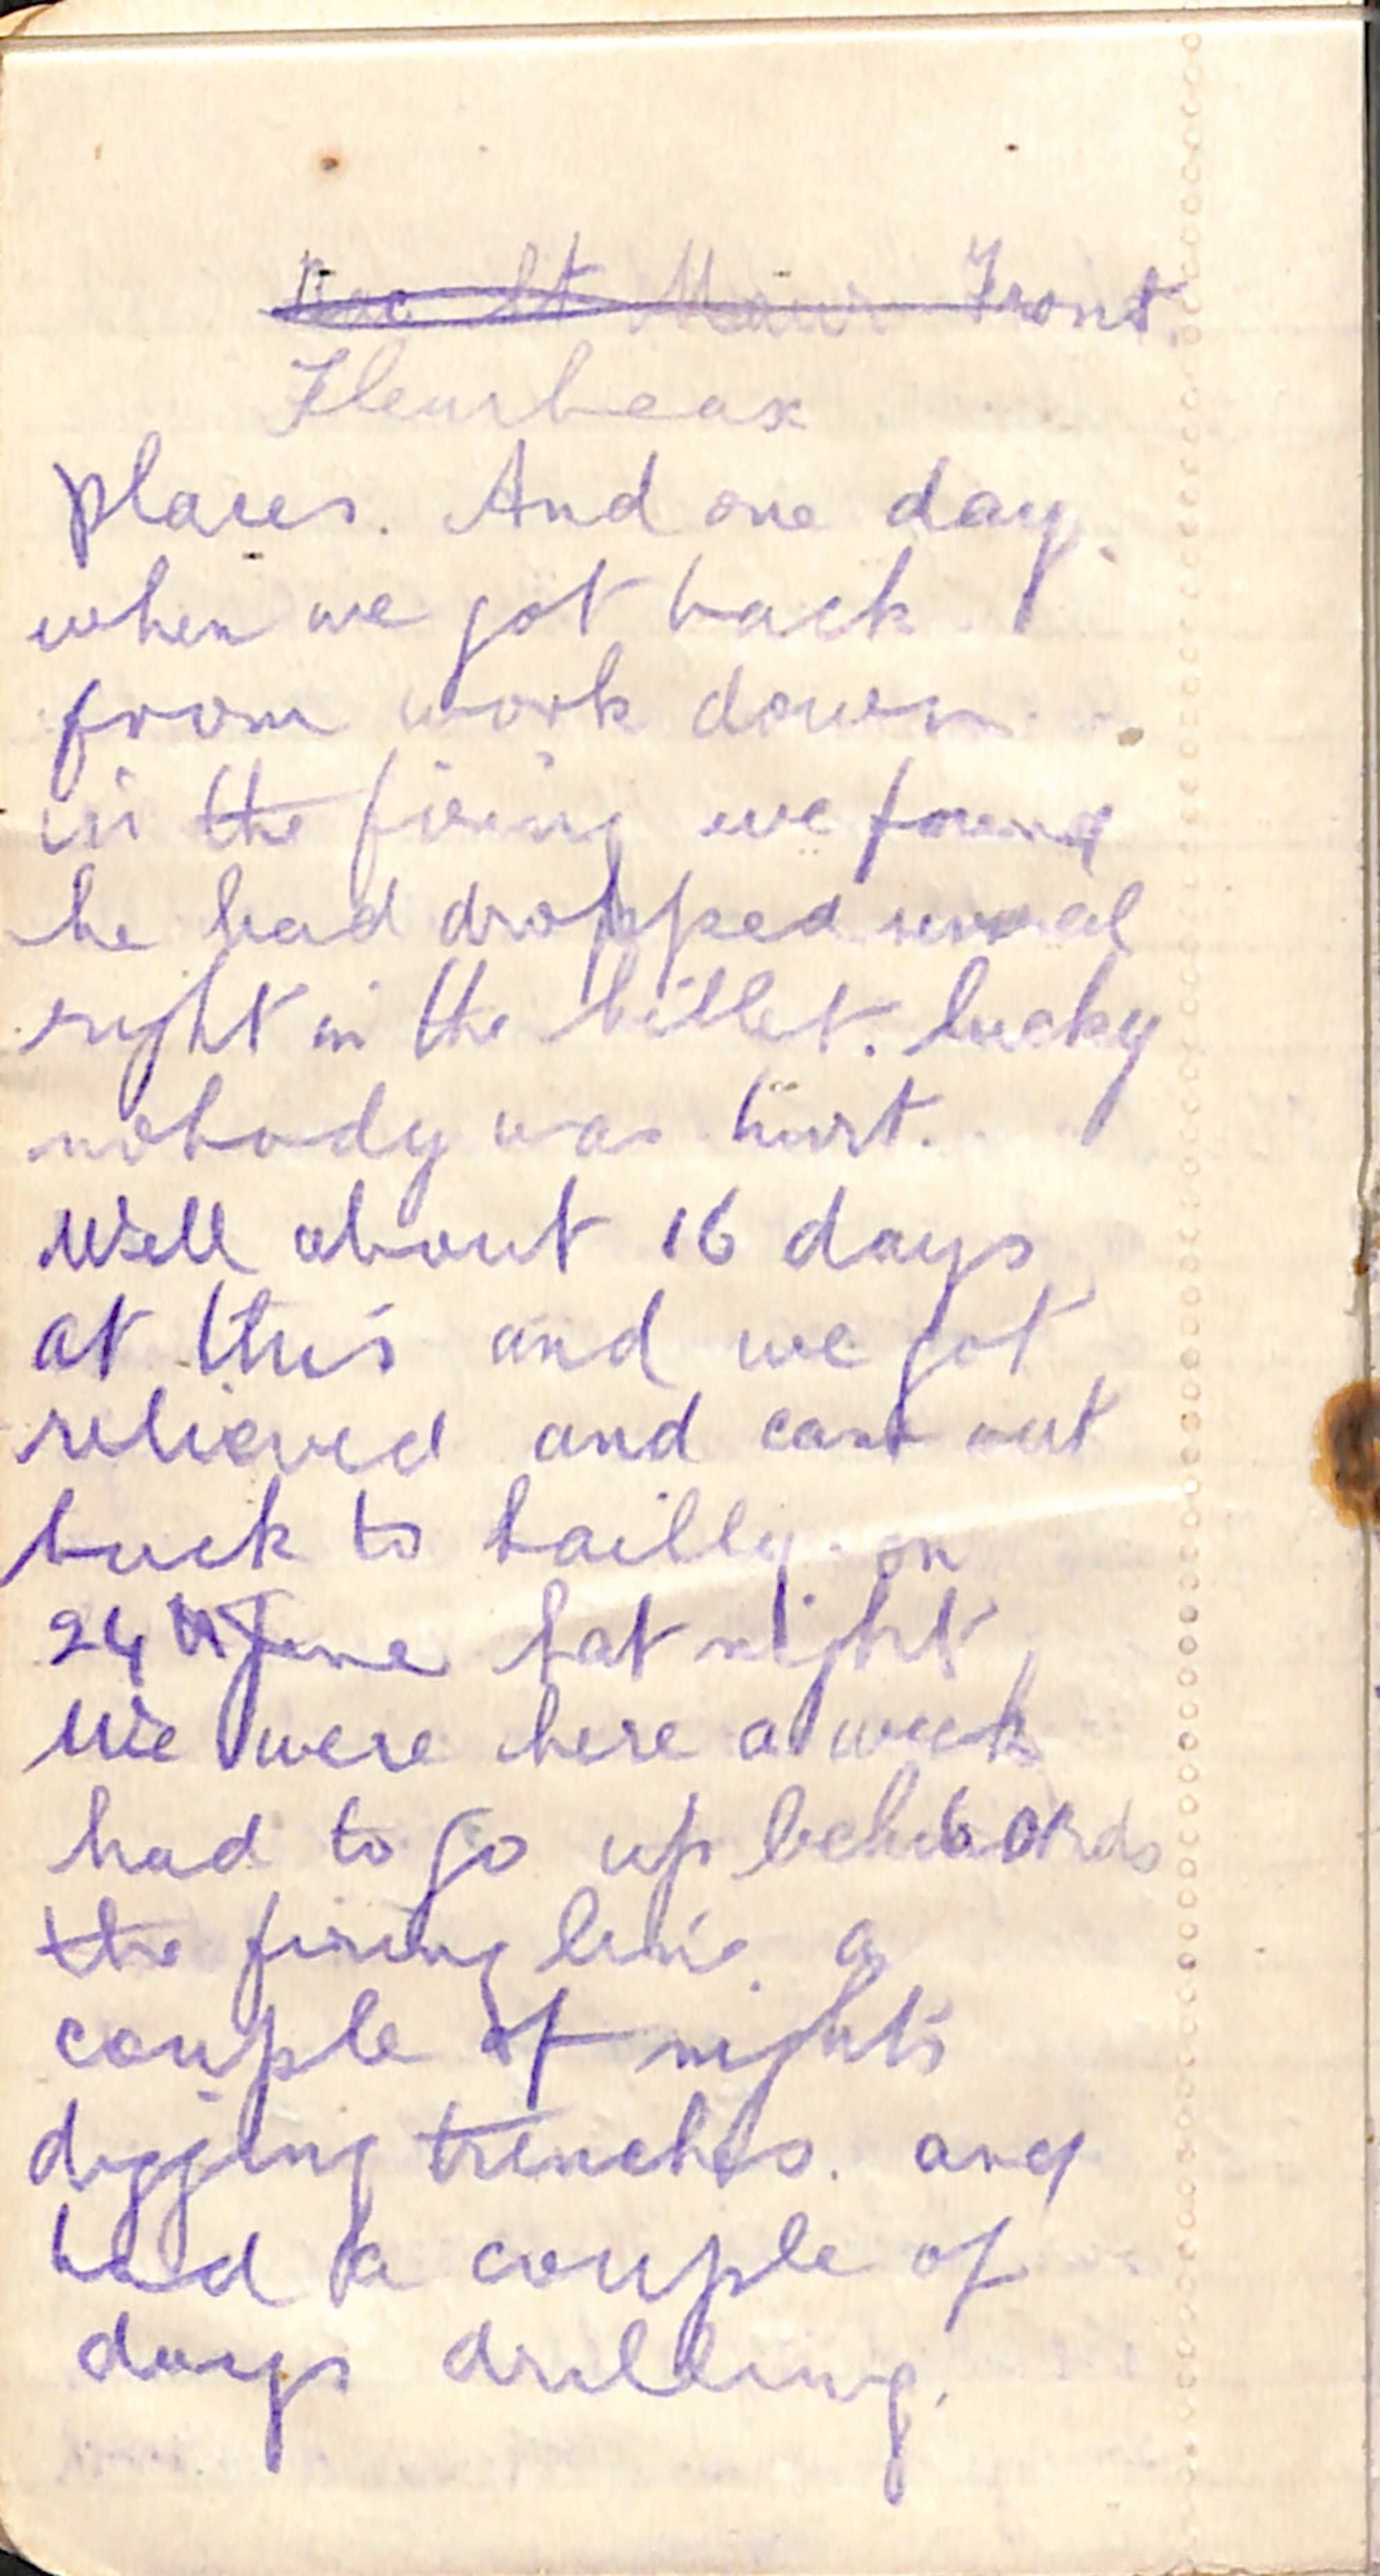 Bac St Maur Front.
Fleurbeax
places. And one day.
when we got back
from work down
in the firing we found
he had dropped several
right in the billet. lucky
nobody was hurt.
Well about 16 days
at this and we got
relieved and came out
back to Sailly. on
24th June hat night
We were here a week
had to go up
the firing line. a
couple of nights
digging trenches. and
had a couple of
days drilling.